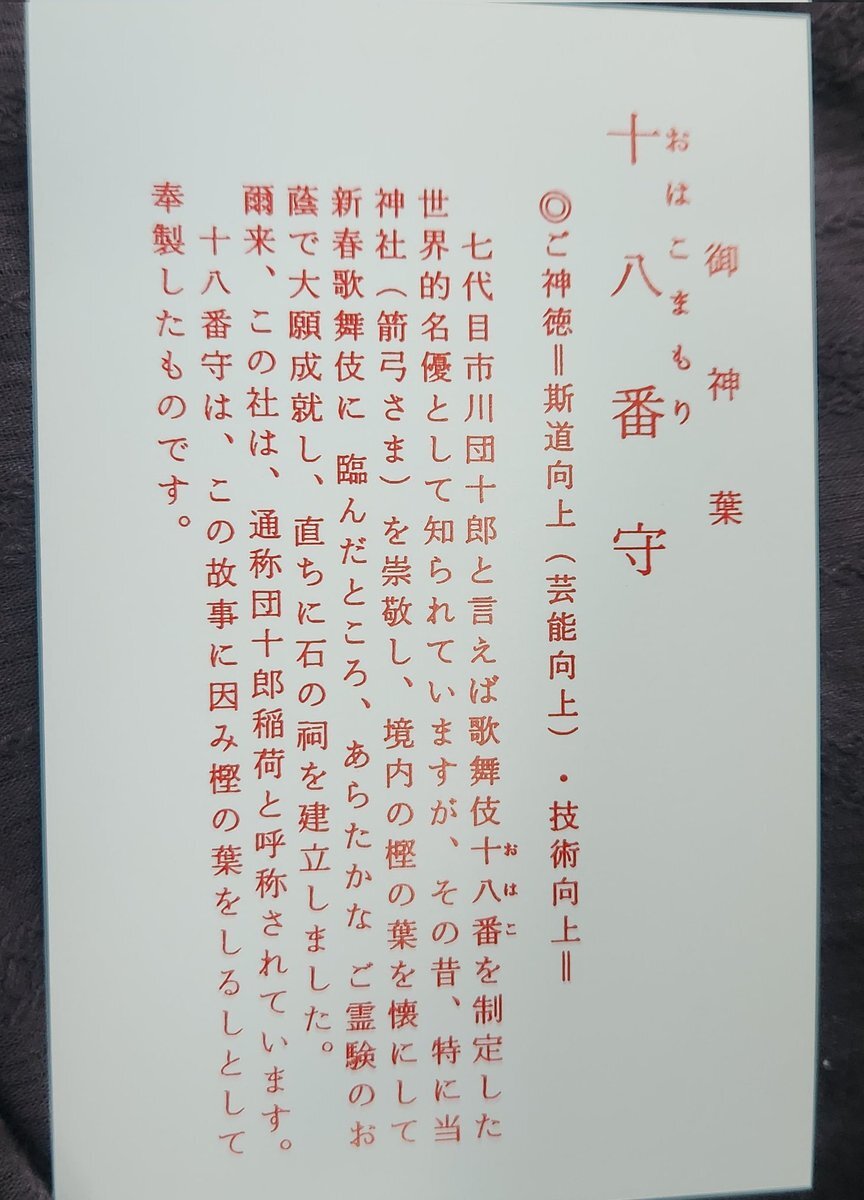 御神葉
おはこまもり
十八番守
◎ご神徳＝斯道向上（芸能向上）・技術向上＝
七代目市川団十郎と言えば歌舞伎十八番を制定した
おはこ
世界的名優として知られていますが、その昔、特に当
神社（箭弓さま）を崇敬し、境内の樫の葉を懐にして
新春歌舞伎に 臨んだところ、あらたかな ご霊験のお
蔭で大願成就し、直ちに石の祠を建立しました。
爾来、この社は、通称団十郎稲荷と呼称されています。
十八番守は、この故事に因み樫の葉をしるしとして
奉製したものです。